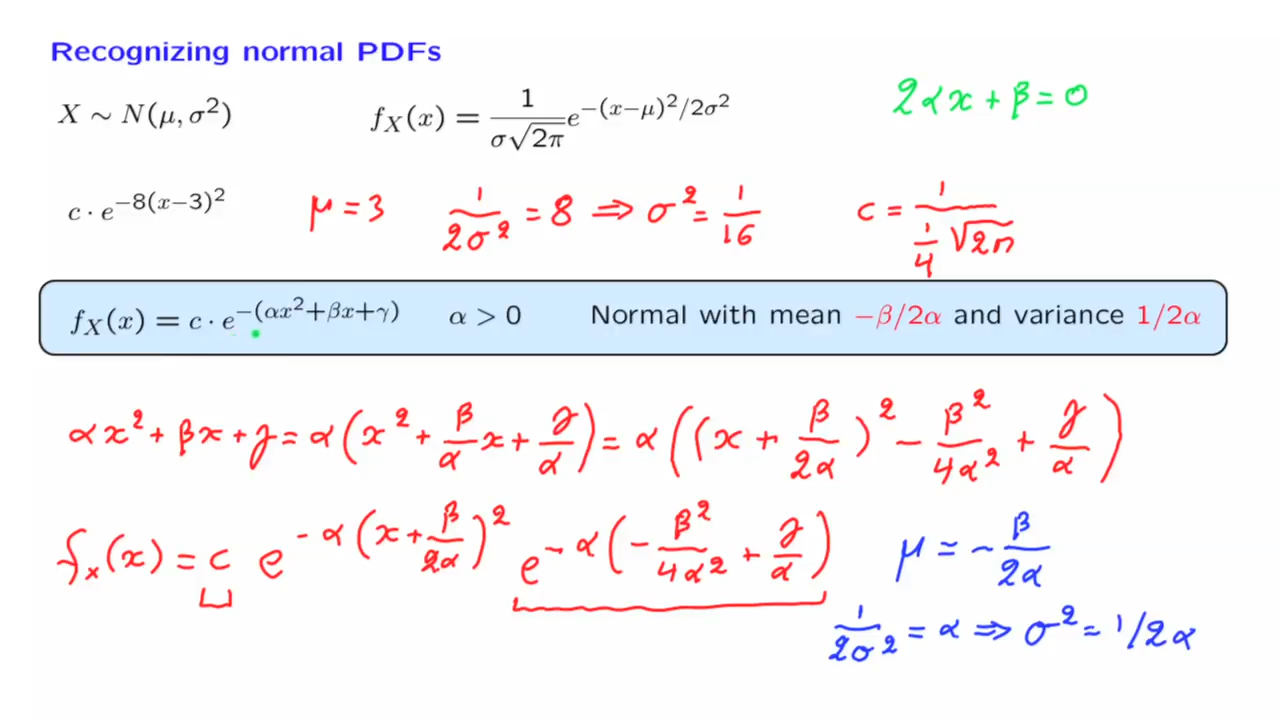 Recognizing normal PDFs
X ∼ N(μ, σ²)    f_X(x) = 1/(σ√(2π)) e^{−(x−μ)²/2σ²}    2αx + β = 0
c · e^{−8(x−3)²}    μ = 3    1/(2σ²) = 8 ⇒ σ² = 1/16    c = 1/((1/4)√(2π))
f_X(x) = c · e^{−(αx²+βx+γ)}    α > 0    Normal with mean −β/2α and variance 1/2α
αx² + βx + γ = α(x² + (β/α)x + γ/α) = α((x + β/(2α))² − β²/(4α²) + γ/α)
f_x(x) = c e^{−α(x + β/(2α))²} e^{−α(−β²/(4α²) + γ/α)}    μ = −β/(2α)
1/(2σ²) = α ⇒ σ² = 1/2α